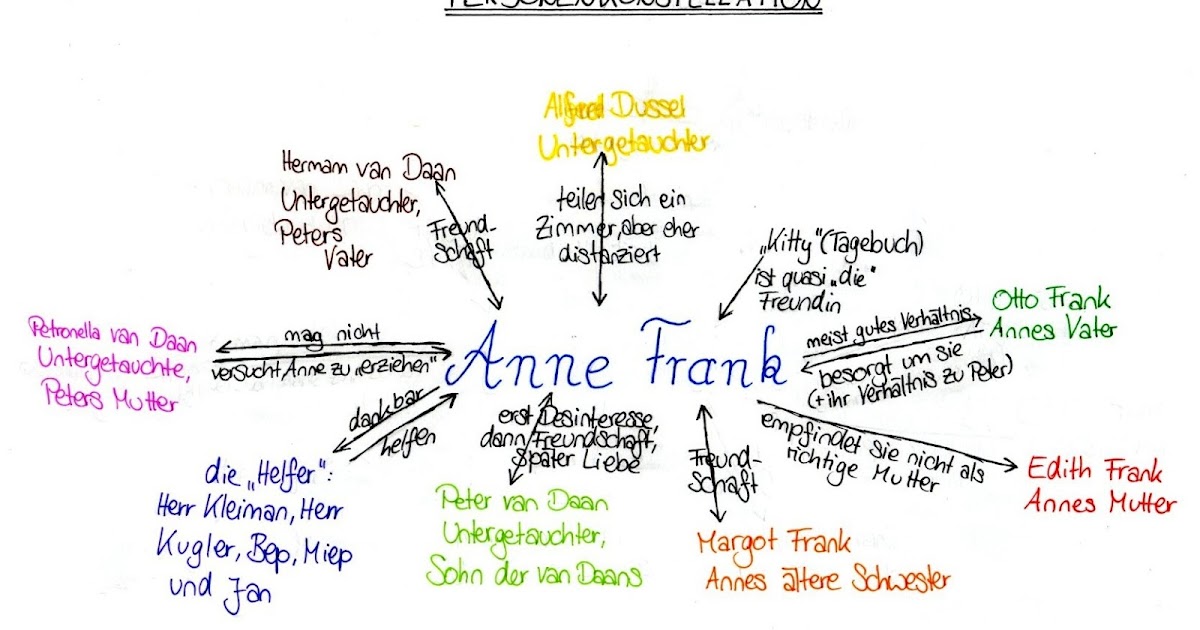 PERSONENKONSTELLATION
Alfred Dussel
Untergetauchter
teilen sich ein
Zimmer, aber eher
distanziert
Hermam van Daan
Untergetauchter,
Peters
Vater
Freund-
schaft
„Kitty“ (Tagebuch)
ist quasi „die“
Freundin
Otto Frank
Annes Vater
meist gutes Verhältnis
besorgt um sie
(+ ihr Verhältnis zu Peter)
Petronella van Daan
Untergetauchte,
Peters Mutter
mag nicht
versucht, Anne zu „erziehen“
Anne Frank
dankbar
helfen
die „Helfer“:
Herr Kleiman, Herr
Kugler, Bep, Miep
und Jan
erst Desinteresse,
dann Freundschaft,
später Liebe
Peter van Daan
Untergetauchter,
Sohn der van Daans
Freund-
schaft
Margot Frank
Annes ältere Schwester
empfindet sie nicht als
richtige Mutter
Edith Frank
Annes Mutter